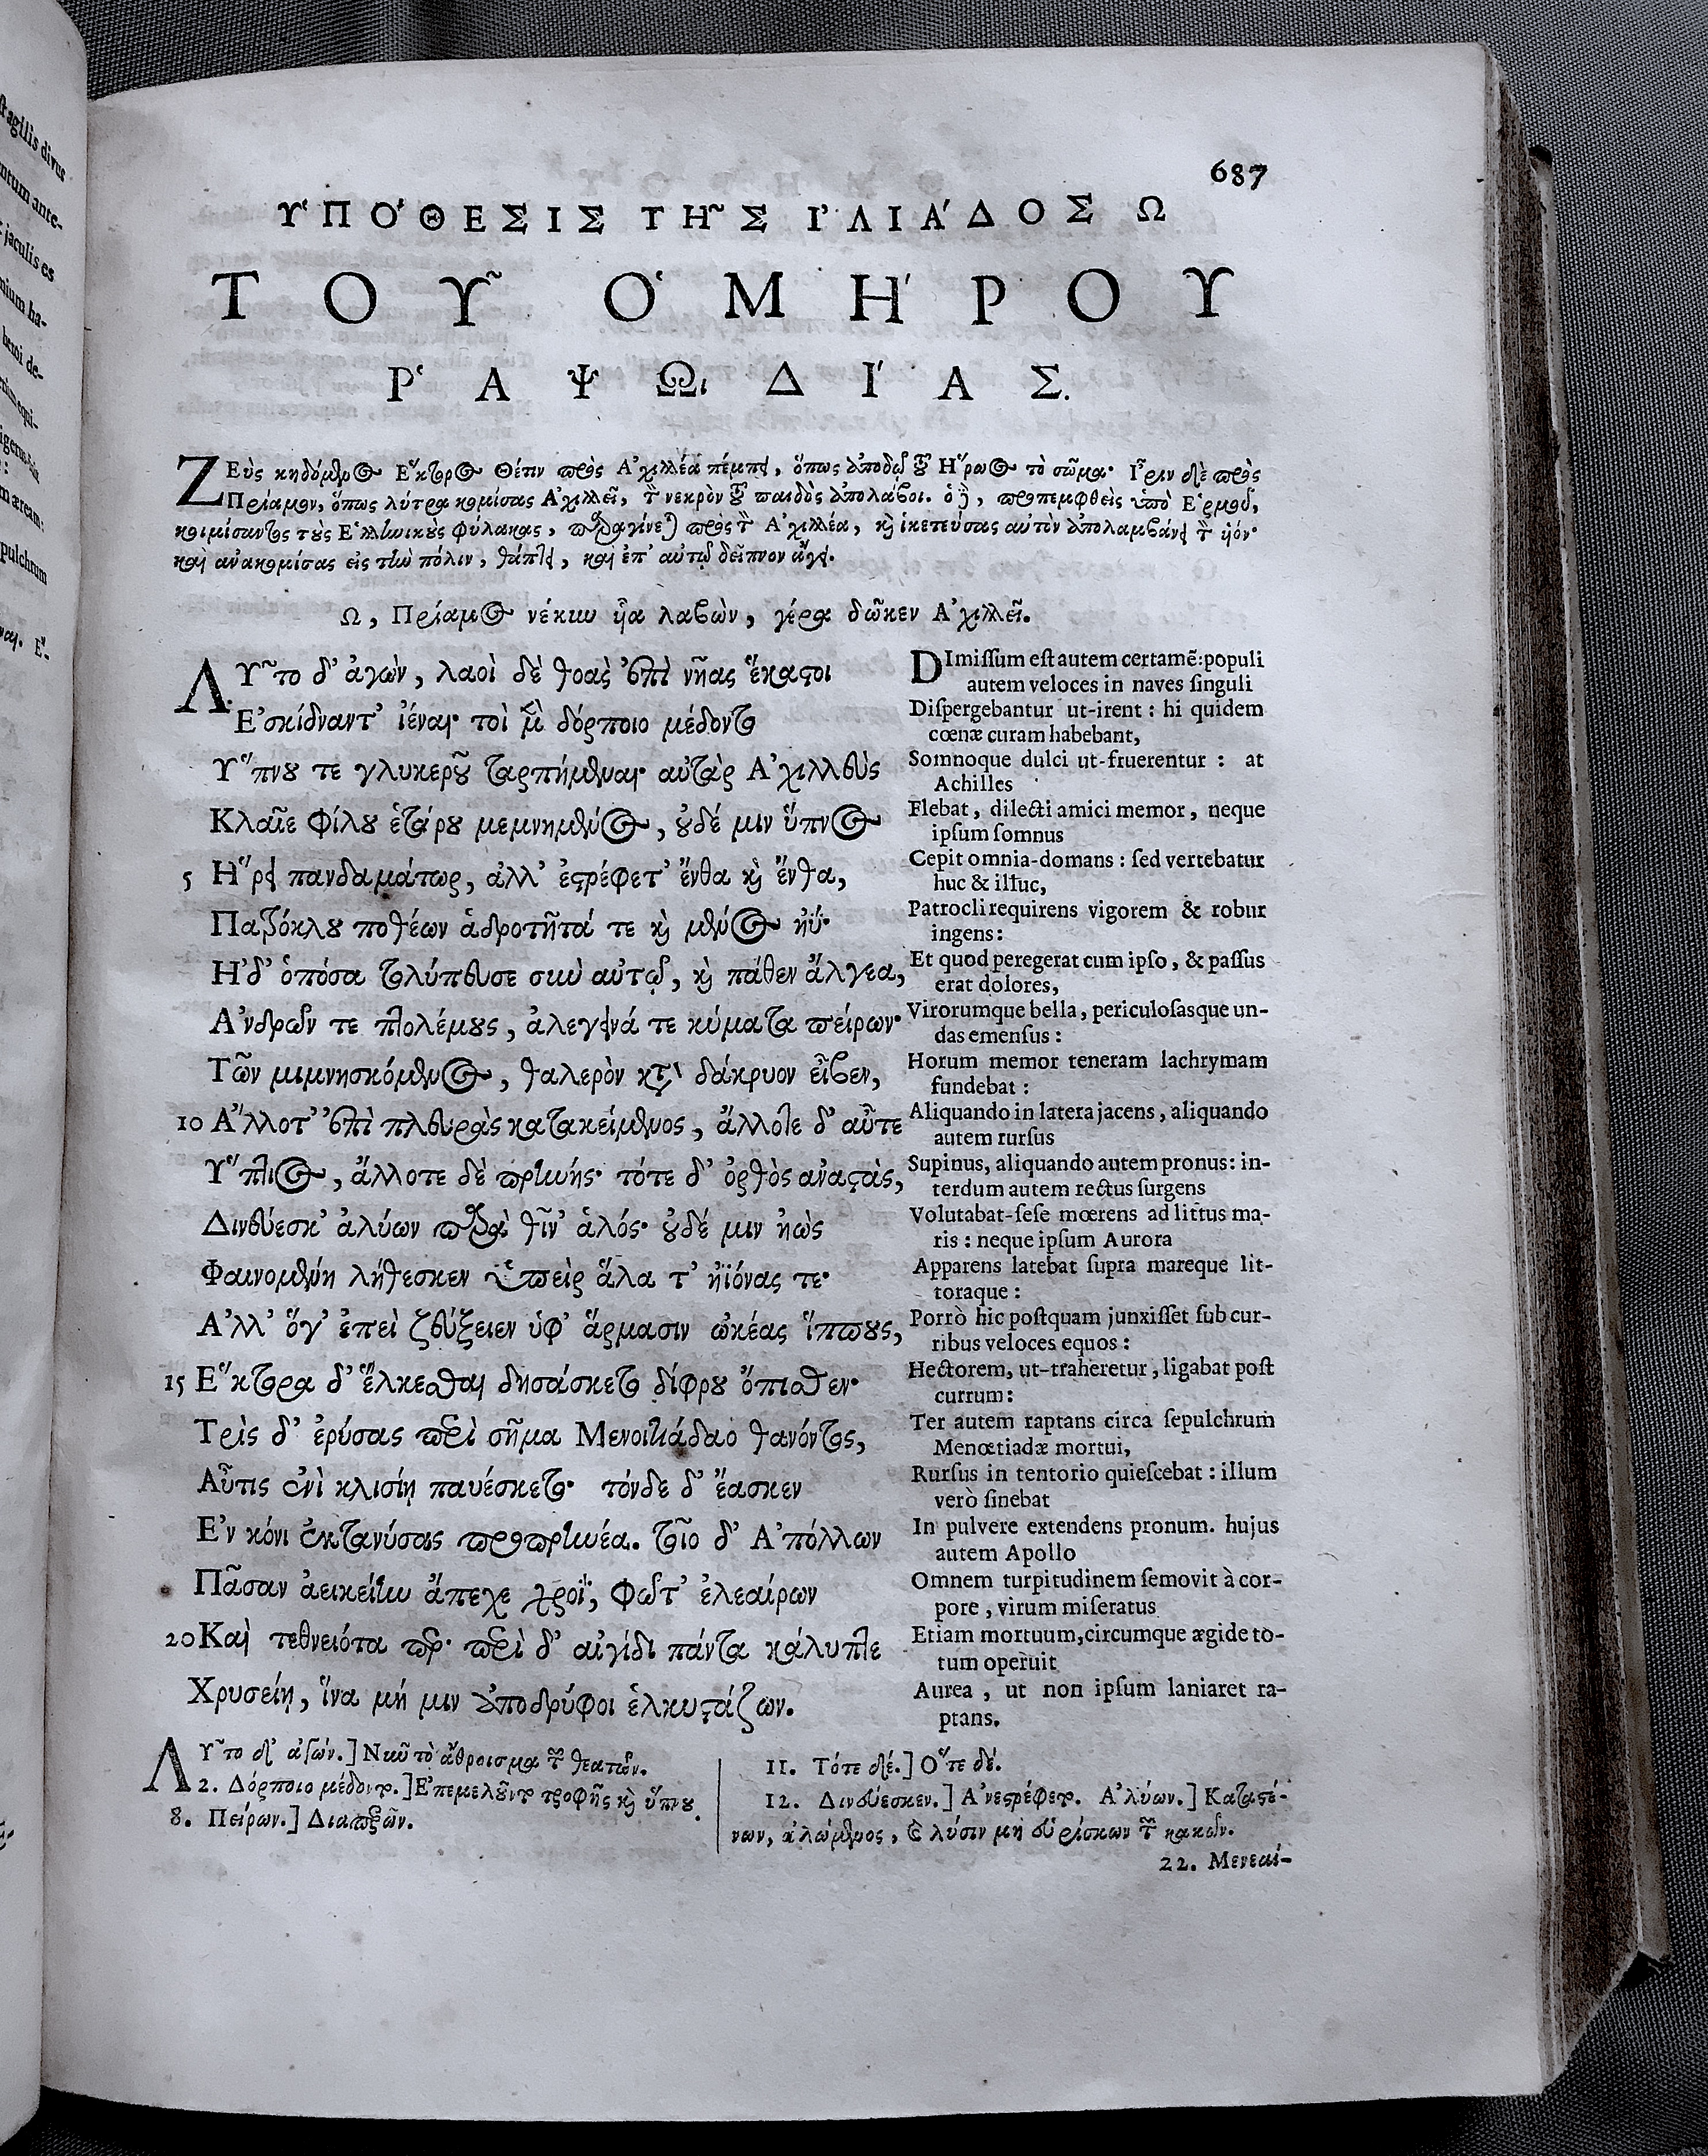 687
ΥΠΟ'ΘΕΣΙΣ ΤΗ~Σ Ι'ΛΙΑ'ΔΟΣ Ω
ΤΟΥ~ Ο'ΜΗ'ΡΟΥ
Ρ'ΑΨΩΙΔΙ'ΑΣ.
ΖΕὺς κηδόμενος Ἕκτορος Θέτιν πρὸς Ἀχιλλέα πέμπει, ὅπως ἀποδῷ τοῦ Ἥρωος τὸ σῶμα· Ἶριν δὲ πρὸς
Πρίαμον, ὅπως λύτρα κομίσας Ἀχιλλεῖ, τὸν νεκρὸν τοῦ παιδὸς ἀπολάβοι. ὁ δὲ, προπεμφθεὶς ὑπὸ Ἑρμοῦ,
κοιμίσαντος τοὺς Ἑλληνικοὺς φύλακας, παραγίνεται πρὸς τὸν Ἀχιλλέα, καὶ ἱκετεύσας αὐτὸν ἀπολαμβάνει τὸν υἱόν·
καὶ ἀνακομίσας εἰς τὴν πόλιν, θάπτει, καὶ ἐπ' αὐτῷ δεῖπνον ἄγει.
Ω, Πρίαμος νέκυν υἷα λαβὼν, γέρα δῶκεν Ἀχιλλεῖ.
ΛΥ~το δ' ἀγὼν, λαοὶ δὲ θοὰς ἐπὶ νῆας ἕκαστοι
Ἐσκίδναντ' ἰέναι· τοὶ μὲν δόρποιο μέδοντο
Ὕπνου τε γλυκεροῦ ταρπήμεναι· αὐτὰρ Ἀχιλλεὺς
Κλαῖε φίλου ἑτάρου μεμνημένος, οὐδέ μιν ὕπνος
5 Ἥρει πανδαμάτωρ, ἀλλ' ἐστρέφετ' ἔνθα καὶ ἔνθα,
Πατρόκλου ποθέων ἁδροτῆτά τε καὶ μένος ἠΰ·
Ἠδ' ὁπόσα τολύπευσε σὺν αὐτῷ, καὶ πάθεν ἄλγεα,
Ἀνδρῶν τε πτολέμους, ἀλεγεινά τε κύματα πείρων·
Τῶν μιμνησκόμενος, θαλερὸν κατὰ δάκρυον εἶβεν,
10 Ἄλλοτ' ἐπὶ πλευρὰς κατακείμενος, ἄλλοτε δ' αὖτε
Ὕπτιος, ἄλλοτε δὲ πρηνής· τότε δ' ὀρθὸς ἀναστὰς,
Δινεύεσκ' ἀλύων παρὰ θῖν' ἁλός· οὐδέ μιν ἠὼς
Φαινομένη λήθεσκεν ὑπεὶρ ἅλα τ' ἠϊόνας τε·
Ἀλλ' ὅγ' ἐπεὶ ζεύξειεν ὑφ' ἅρμασιν ὠκέας ἵππους,
15 Ἕκτορα δ' ἕλκεσθαι δησάσκετο δίφρου ὄπισθεν·
Τρὶς δ' ἐρύσας περὶ σῆμα Μενοιτιάδαο θανόντος,
Αὖτις ἐνὶ κλισίῃ παυέσκετο· τόνδε δ' ἔασκεν
Ἐν κόνι ἐκτανύσας προπρηνέα. τοῖο δ' Ἀπόλλων
Πᾶσαν ἀεικείην ἄπεχε χροῒ, φῶτ' ἐλεαίρων
20 Καὶ τεθνειότα περ· περὶ δ' αἰγίδι πάντα κάλυπτε
Χρυσείῃ, ἵνα μή μιν ἀποδρύφοι ἑλκυστάζων.
DImissum est autem certamẽ: populi
autem veloces in naves singuli
Dispergebantur ut-irent : hi quidem
cœnæ curam habebant,
Somnoque dulci ut-fruerentur : at
Achilles
Flebat, dilecti amici memor, neque
ipsum somnus
Cepit omnia-domans : sed vertebatur
huc & illuc,
Patrocli requirens vigorem & robur
ingens:
Et quod peregerat cum ipso, & passus
erat dolores,
Virorumque bella, periculosasque un-
das emensus :
Horum memor teneram lachrymam
fundebat :
Aliquando in latera jacens, aliquando
autem rursus
Supinus, aliquando autem pronus: in-
terdum autem rectus surgens
Volutabat-sese mœrens ad littus ma-
ris : neque ipsum Aurora
Apparens latebat supra mareque lit-
toraque :
Porrò hic postquam junxisset sub cur-
ribus veloces equos :
Hectorem, ut-traheretur, ligabat post
currum:
Ter autem raptans circa sepulchrum
Menœtiadæ mortui,
Rursus in tentorio quiescebat : illum
verò sinebat
In pulvere extendens pronum. hujus
autem Apollo
Omnem turpitudinem semovit à cor-
pore, virum miseratus
Etiam mortuum, circumque ægide to-
tum operuit
Aurea, ut non ipsum laniaret ra-
ptans.
ΛΥ~το δ' ἀγών.] Νῦν τὸ ἄθροισμα τῶν θεατῶν.
2. Δόρποιο μέδοντο.] Ἐπεμελοῦντο τροφῆς καὶ ὕπνου.
8. Πείρων.] Διαπερῶν.
11. Τότε δέ.] Ὅτε δέ.
12. Δινεύεσκεν.] Ἀνεστρέφετο. Ἀλύων.] Καταστέ-
νων, ἀλώμενος, καὶ λύσιν μὴ εὑρίσκων τῶν κακῶν.
22. Μενεαί-